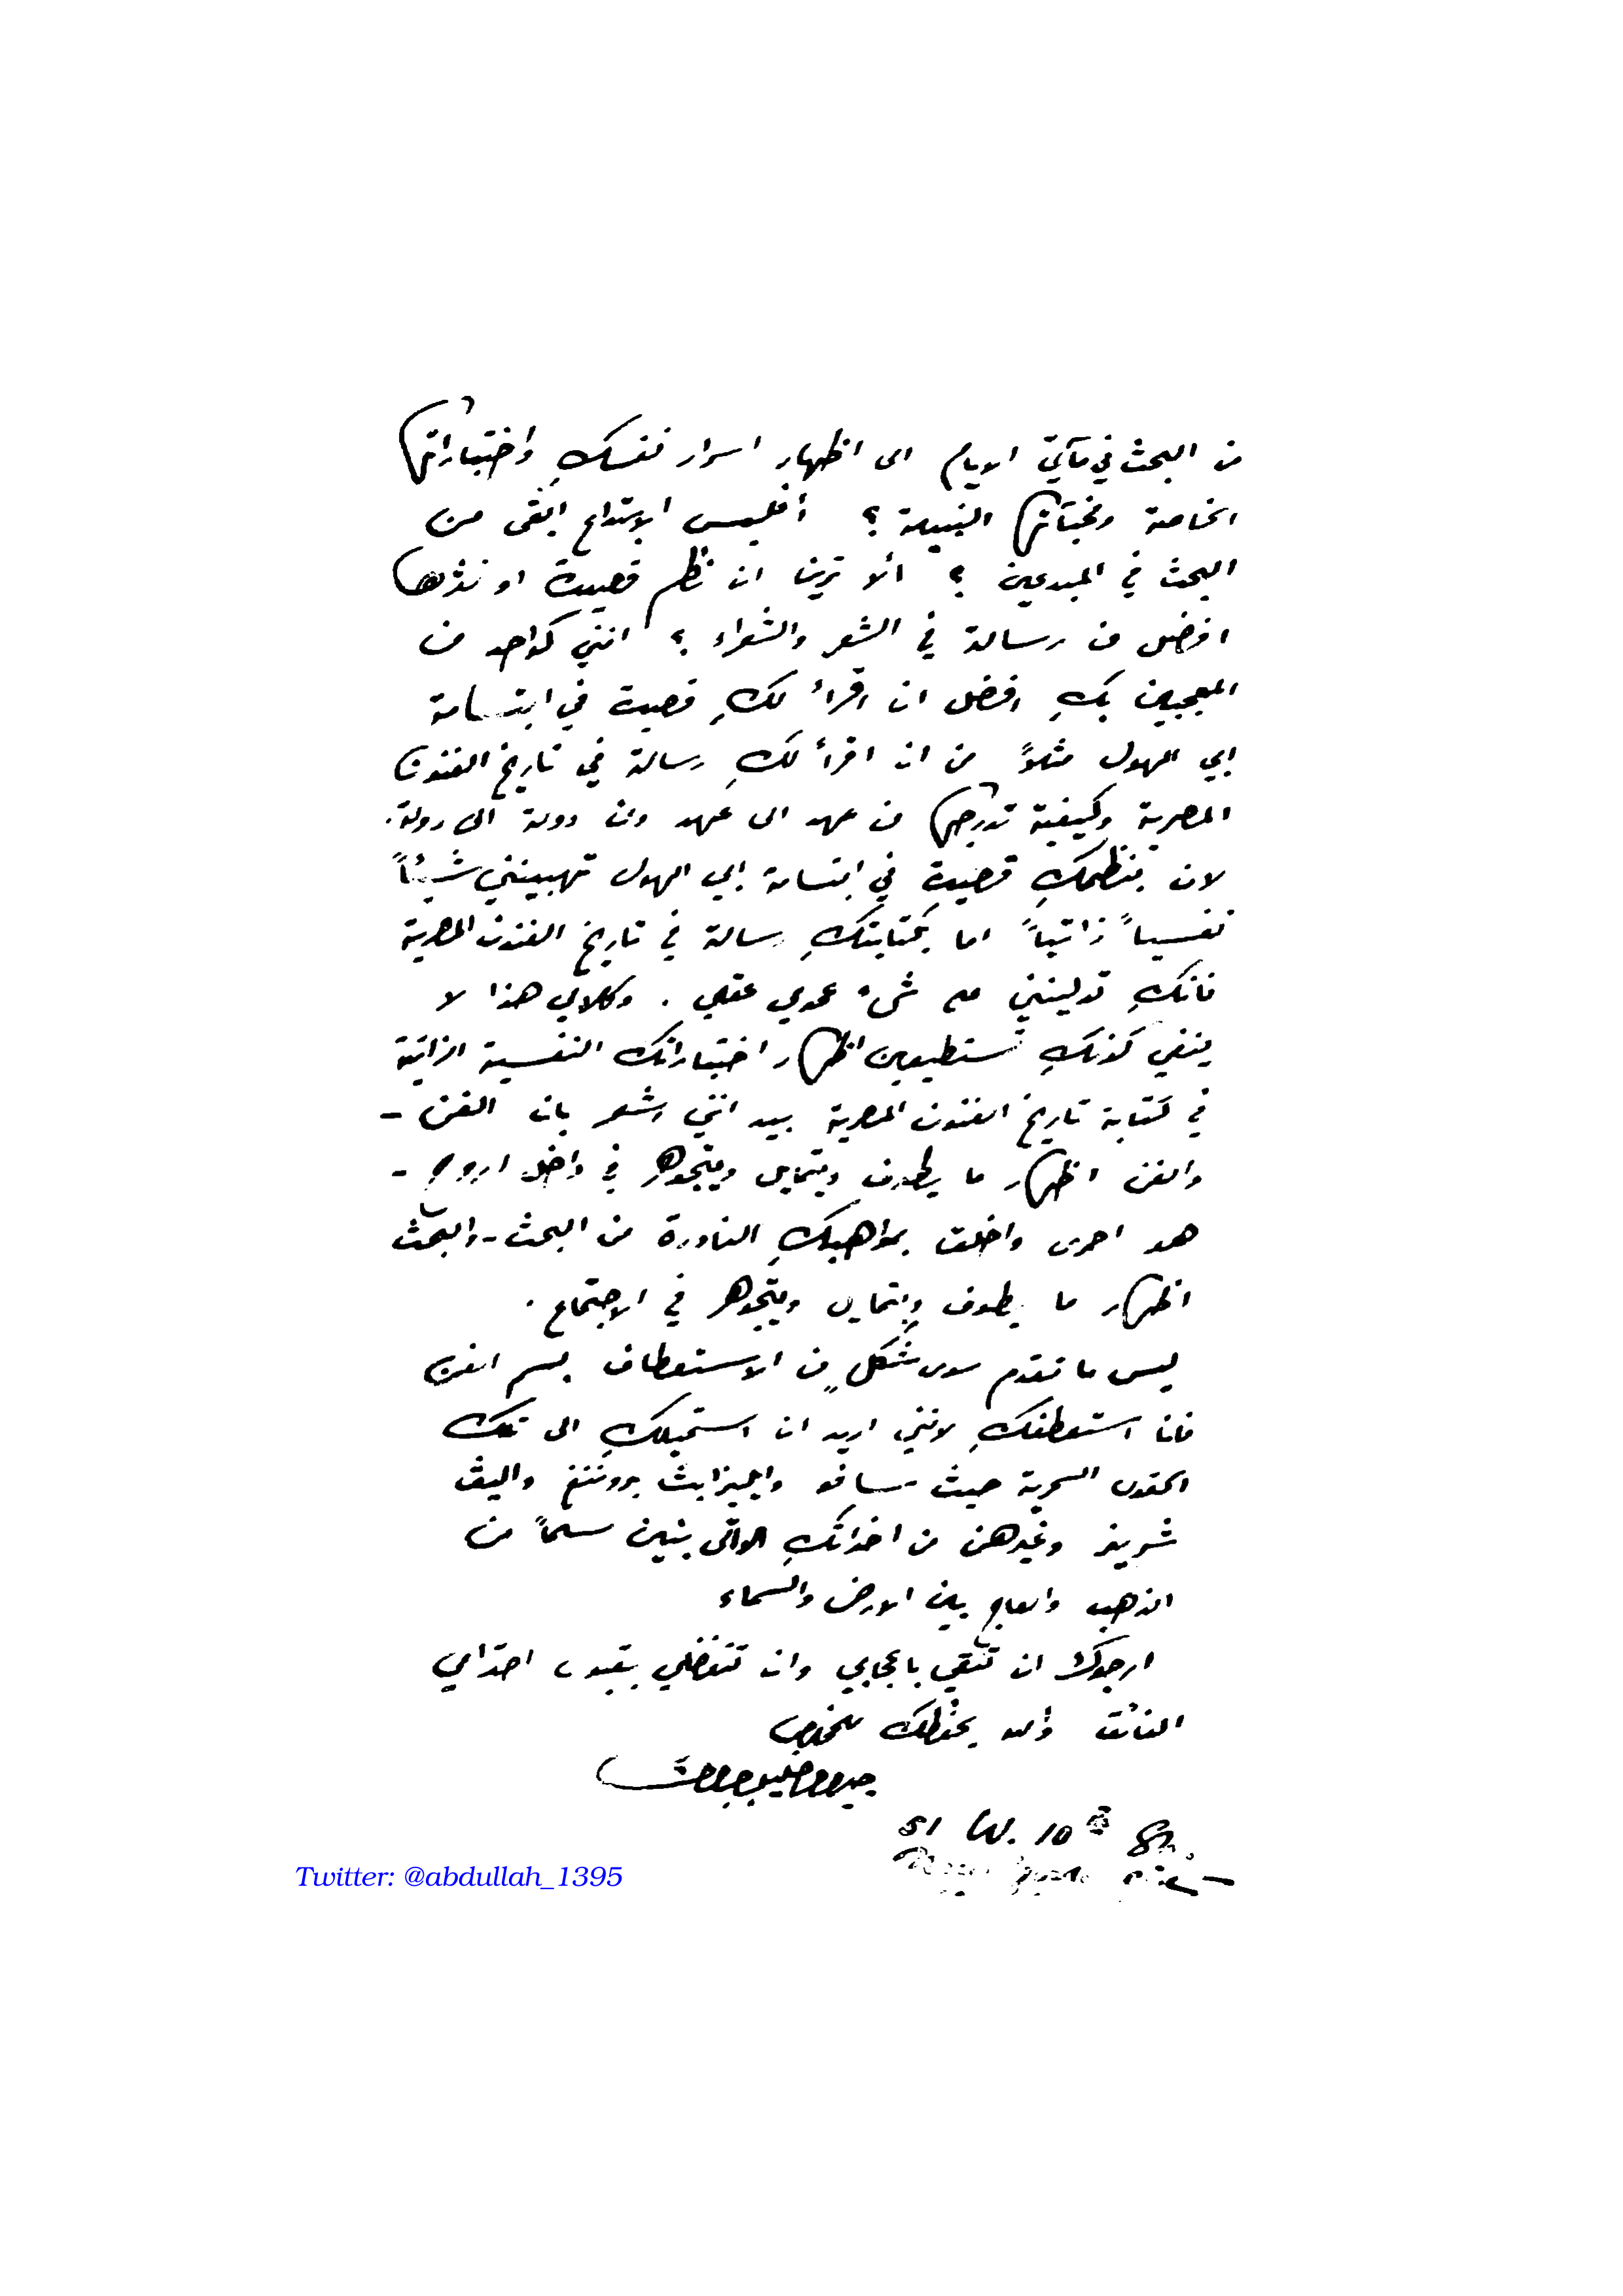 من البحث في مآتي الايام الى اظهار اسرار نفسكِ واختباراتها
الخاصة ومخبآتها النبيلة ؟ أفليس الابتداع ابقى من
البحث في المبدعين ؟ ألا ترين ان نظم قصيدة او نثرها
افضل من رسالة في الشعر والشعراء ؟ انني كواحد من
المعجبين بكِ افضل ان اقرأ لكِ قصيدة في ابتسامة
ابي الهول مثلاً من ان اقرأ لكِ رسالة في تاريخ الفنون
المصرية وكيفية تدرجها من عهد الى عهد ومن دولة الى دولة.
لان بنظمكِ قصيدة في ابتسامة ابي الهول تهبينني شيئاً
نفسياً ذاتياً اما بكتابتكِ رسالة في تاريخ الفنون المصرية
فانكِ تدلينني على شيء عمومي عقلي . وكلامي هذا لا
ينفي كونكِ تستطيعين اظهار اختباراتك النفسية الذاتية
في كتابة تاريخ الفنون المصرية بيد انني اشعر بان الفن -
والفن اظهار ما يطوف ويتمايل ويتجوهر في داخل الروح -
هو احرى واخلق بمواهبكِ النادرة من البحث - والبحث
اظهار ما يطوف ويتمايل ويتجوهر في الاجتماع .
ليس ما تقدم سوى شكلٍ من الاستعطاف باسم الفن
فانا استعطفكِ لانني اريد ان استميلكِ الى تلك
الحقول السحرية حيث سافو وايليزابيث بروننغ واليف
شرينر وغيرهن من اخواتكِ اللواتي بنين سلماً من
الذهب والعاج بين الارض والسماء
ارجوك ان تثقي باعجابي وان تتفضلي بقبول احترامي
الفائق والله يحفظك للمخلص
جبران خليل جبران
51 W. 10th St.
New York
Twitter: @abdullah_1395